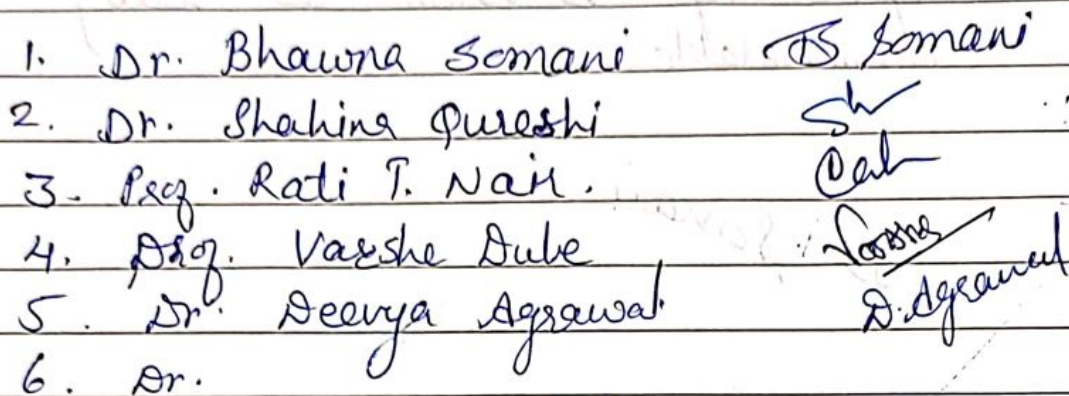 1. Dr. Bhawna Somani BSomani
2. Dr. Shahina Qureshi Sh
3. Prof. Rati T. Nair.
4. Prof. Varsha Dube Varsha
5. Dr. Deevya Agrawal D. Agrawal
6. Dr.